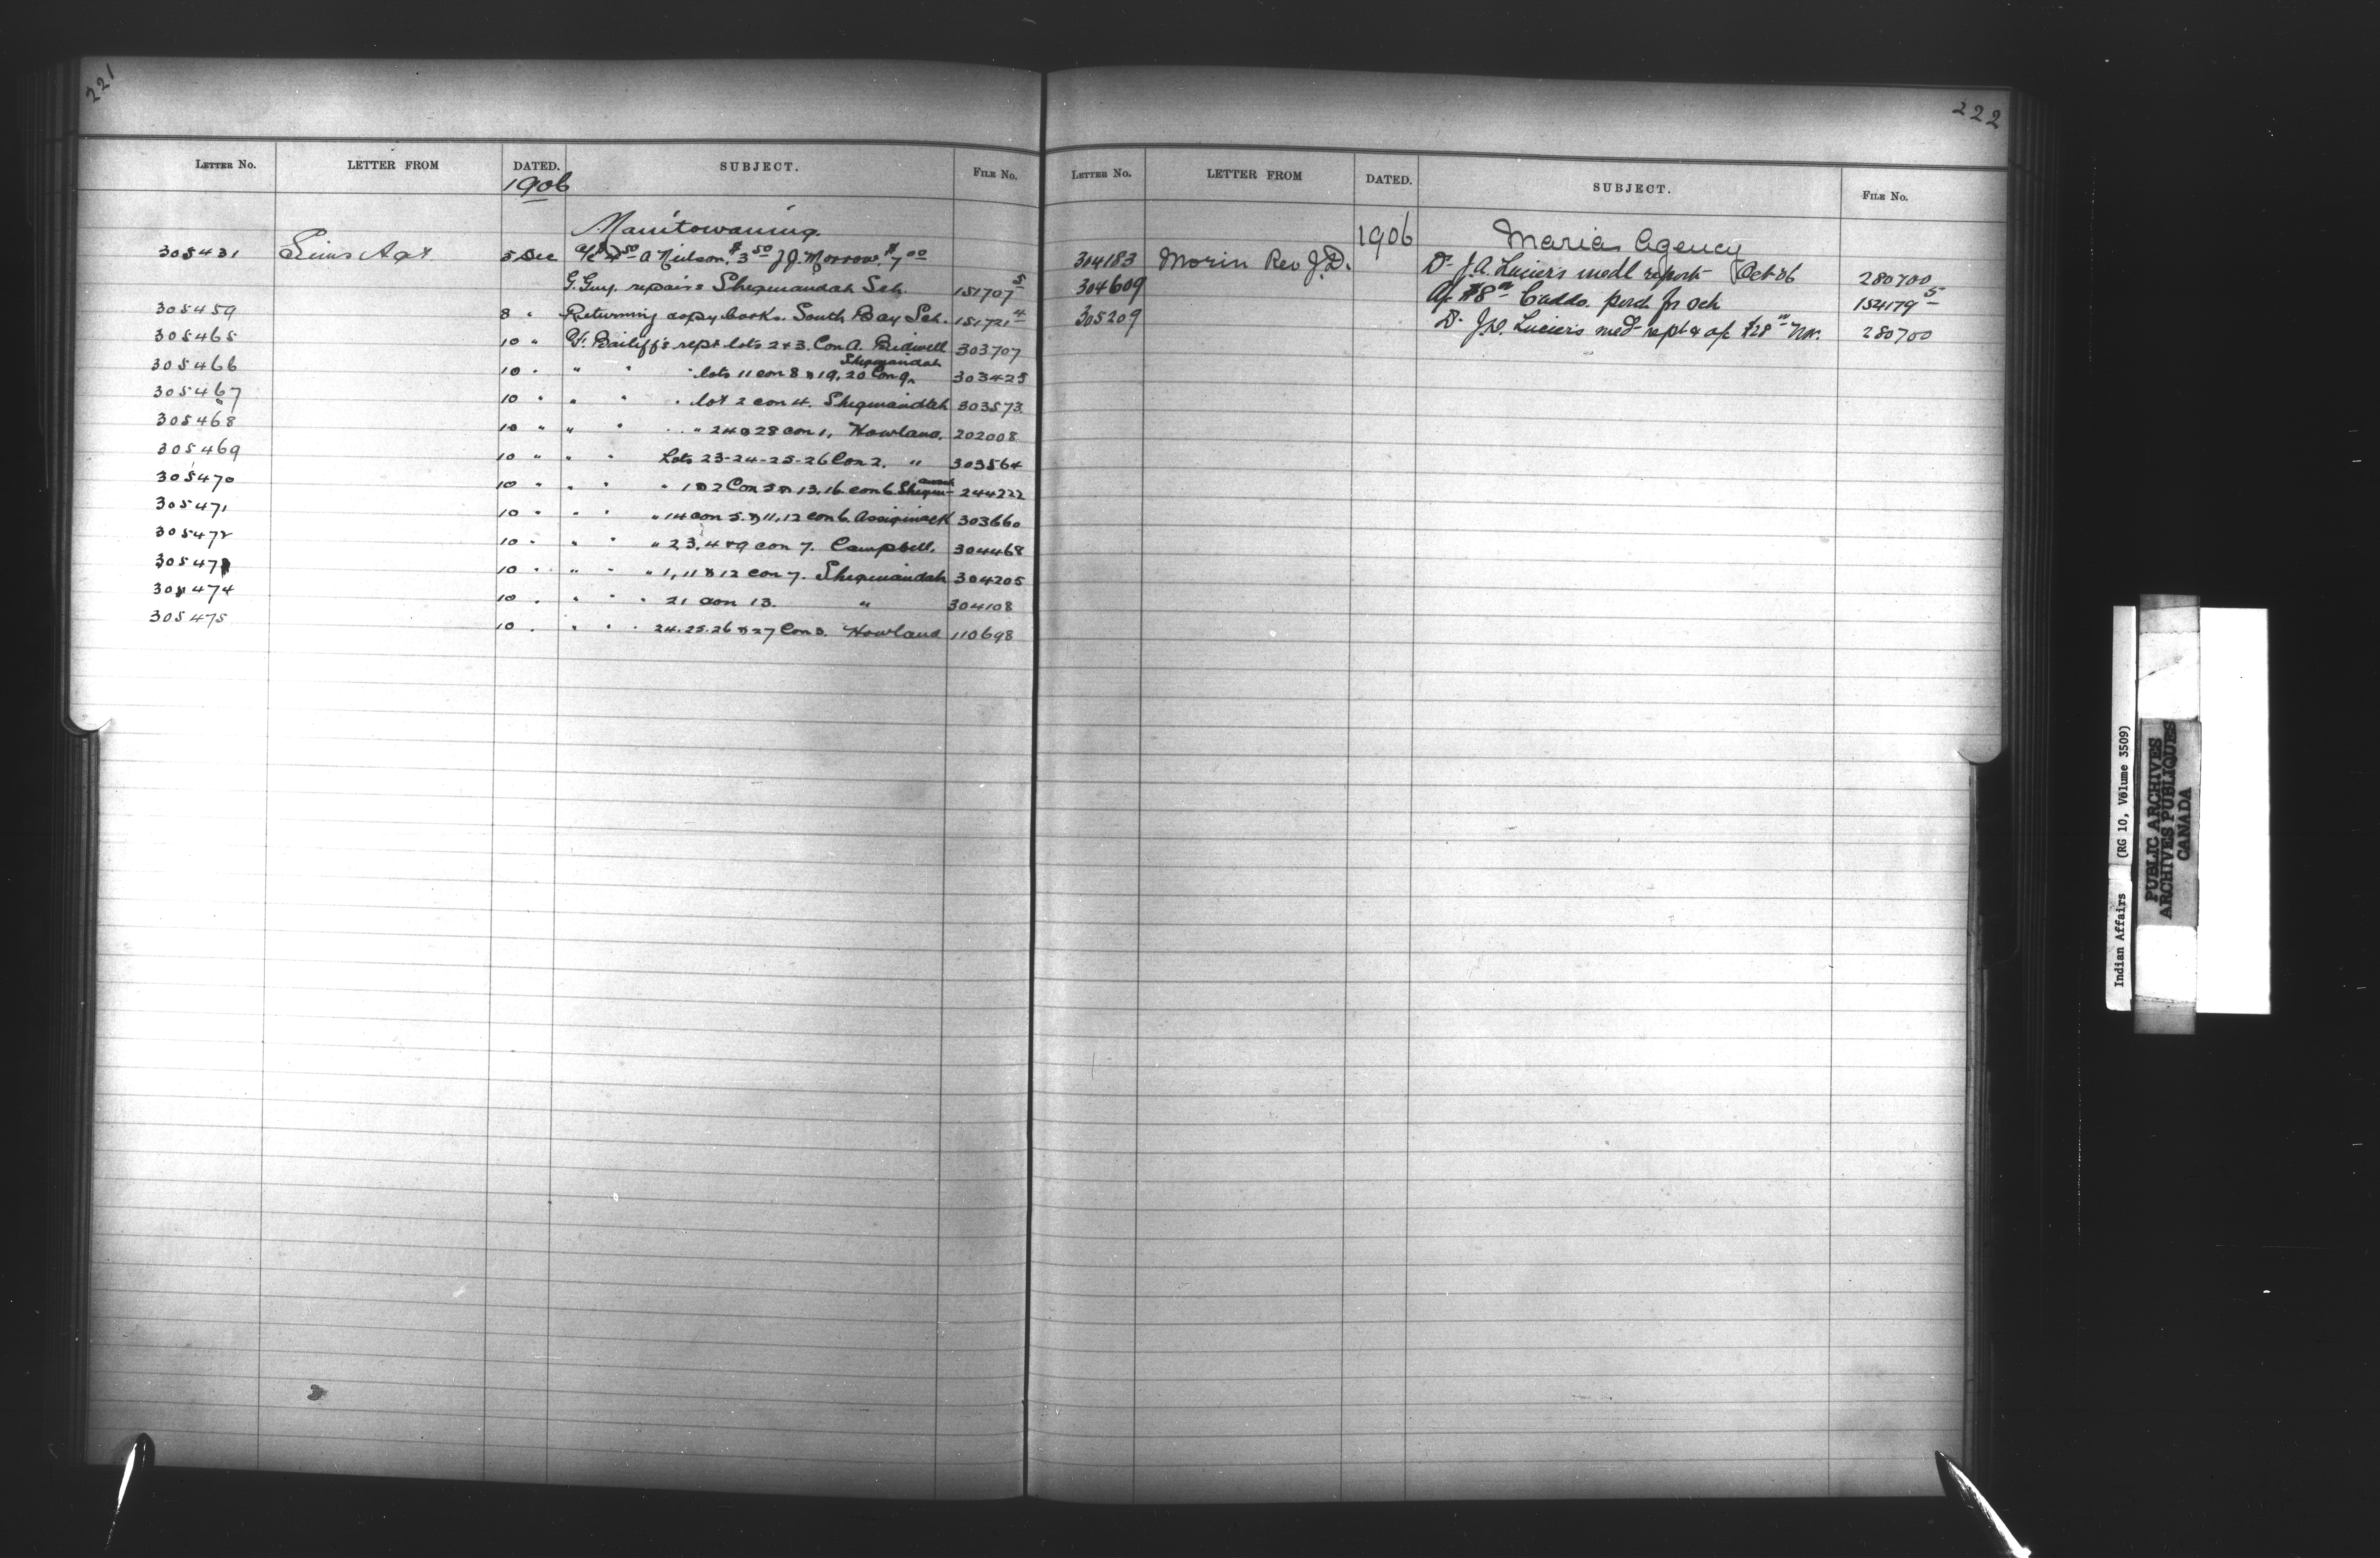 221
LETTER NO. LETTER FROM DATED. SUBJECT. FILE NO.
1906
Manitowaning
305431 Sims Agt 5 Dec A Neilson. $3.50 J.J. Morrow. $7.00
G. Guy. repairs Sheguiandah Sch. 151707-5
305459 8 " Returning copy books. South Bay Sch. 151721-4
305465 10 " Bailiff's rept lots 2 & 3. Con A. Bidwell 303707
305466 10 " " " " lots 11 con 8 & 19, 20 Con 9, Sheguiandah 303425
305467 10 " " " " lot 2 con 4. Sheguiandah 303573
305468 10 " " " " " 24 & 28 con 1, Howland. 202008
305469 10 " " " Lots 23-24-25-26 Con 2. " 303564
305470 10 " " " " 1 & 2 Con 5 & 13, 16. con 6. Shegu- 244222
305471 10 " " " " 14 con 5. & 11, 12 con 6. Assiginack 303660
305472 10 " " " " 2, 3, 4 & 9 con 7. Campbell. 304468
305473 10 " " " " 1, 11 & 12 con 7. Sheguiandah 304205
305474 10 " " " " 21 con 13. " 304108
305475 10 " " " " 24. 25. 26 & 27 Con 3. Howland 110698
222
LETTER NO. LETTER FROM DATED. SUBJECT. FILE NO.
1906 Maria Agency
304183 Morin Rev J.D. Dr J.A. Lucier's medl report Oct 06 280700
304609 a/c $8 00 purd for Och 152179-5
305209 Dr J.A. Lucier's med rept & a/c $28 00 Nov. 280700
Indian Affairs (RG 10, Volume 3509)
PUBLIC ARCHIVES
ARCHIVES PUBLIQUES
CANADA